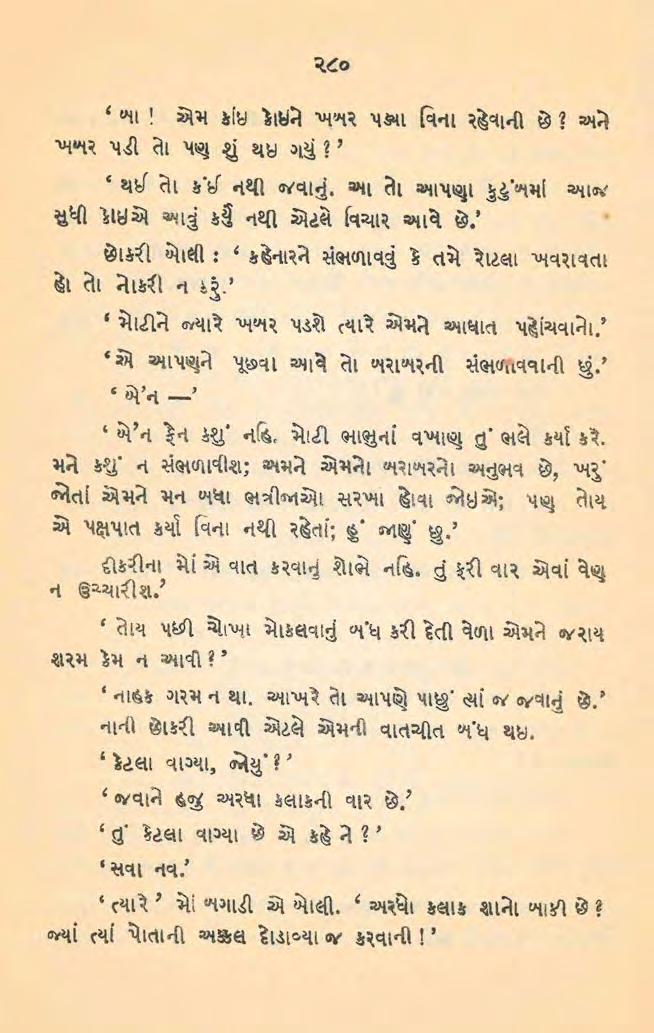 ૨૮૦
‘ બા ! એમ કાંઇ કોઇને ખબર પડ્યા વિના રહેવાની છે ? અને
ખબર પડી તો પણ શું થઇ ગયું ? ’
‘ થઈ તો કંઈ નથી જવાનું. આ તો આપણા કુટુંબમાં આજ
સુધી કોઇએ આવું કર્યું નથી એટલે વિચાર આવે છે.’
છોકરી બોલી : ‘ કહેનારને સંભળાવવું કે તમે રોટલા ખવરાવતા
હો તો નોકરી ન કરું.’
‘ મોટીને જ્યારે ખબર પડશે ત્યારે એમને આઘાત પહોંચવાનો.’
‘ એ આપણને પૂછવા આવે તો બરાબરની સંભળાવવાની છું.’
‘ બે’ન —’
‘ બે’ન ફેન કશું નહિ. મોટી ભાભુનાં વખાણ તું ભલે કર્યા કરે.
મને કશું ન સંભળાવીશ; અમને એમનો બરાબરનો અનુભવ છે, ખરું
જોતાં એમને મન બધા ભત્રીજાઓ સરખા હોવા જોઇએ; પણ તોય
એ પક્ષપાત કર્યા વિના નથી રહેતાં; હું જાણું છું.’
દીકરીના મોં એ વાત કરવાનું શોભે નહિ. તું ફરી વાર એવાં વેણ
ન ઉચ્ચારીશ.’
‘ તોય પછી ચોખા મોકલવાનું બંધ કરી દેતી વેળા એમને જરાય
શરમ કેમ ન આવી ? ’
‘ નાહક ગરમ ન થા. આખરે તો આપણે પાછું ત્યાં જ જવાનું છે.’
નાની છોકરી આવી એટલે એમની વાતચીત બંધ થઇ.
‘ કેટલા વાગ્યા, જોયું ? ’
‘ જવાને હજુ અરધા કલાકની વાર છે.’
‘ તું કેટલા વાગ્યા છે એ કહે ને ? ’
‘ સવા નવ.’
‘ ત્યારે ’ મોં બગાડી એ બોલી. ‘ અરધો કલાક શાનો બાકી છે ?
જ્યાં ત્યાં પોતાની અક્કલ દોડાવ્યા જ કરવાની ! ’